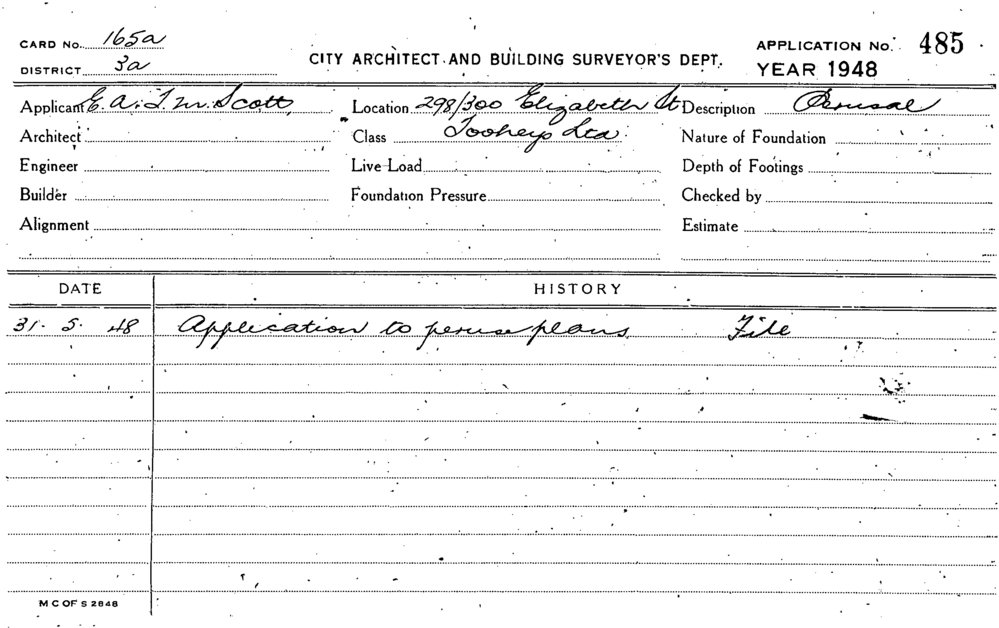 CARD No. 165a
DISTRICT 3a
CITY ARCHITECT AND BUILDING SURVEYOR'S DEPT.
APPLICATION No. 485
YEAR 1948
Applicant E. A. & T. M. Scott Location 298/300 Elizabeth St Description Perusal
Architect Class Tooheys Ltd Nature of Foundation
Engineer Live Load Depth of Footings
Builder Foundation Pressure Checked by
Alignment Estimate
DATE HISTORY
31. 5. 48 Application to peruse plans. File
M C OF S 2848